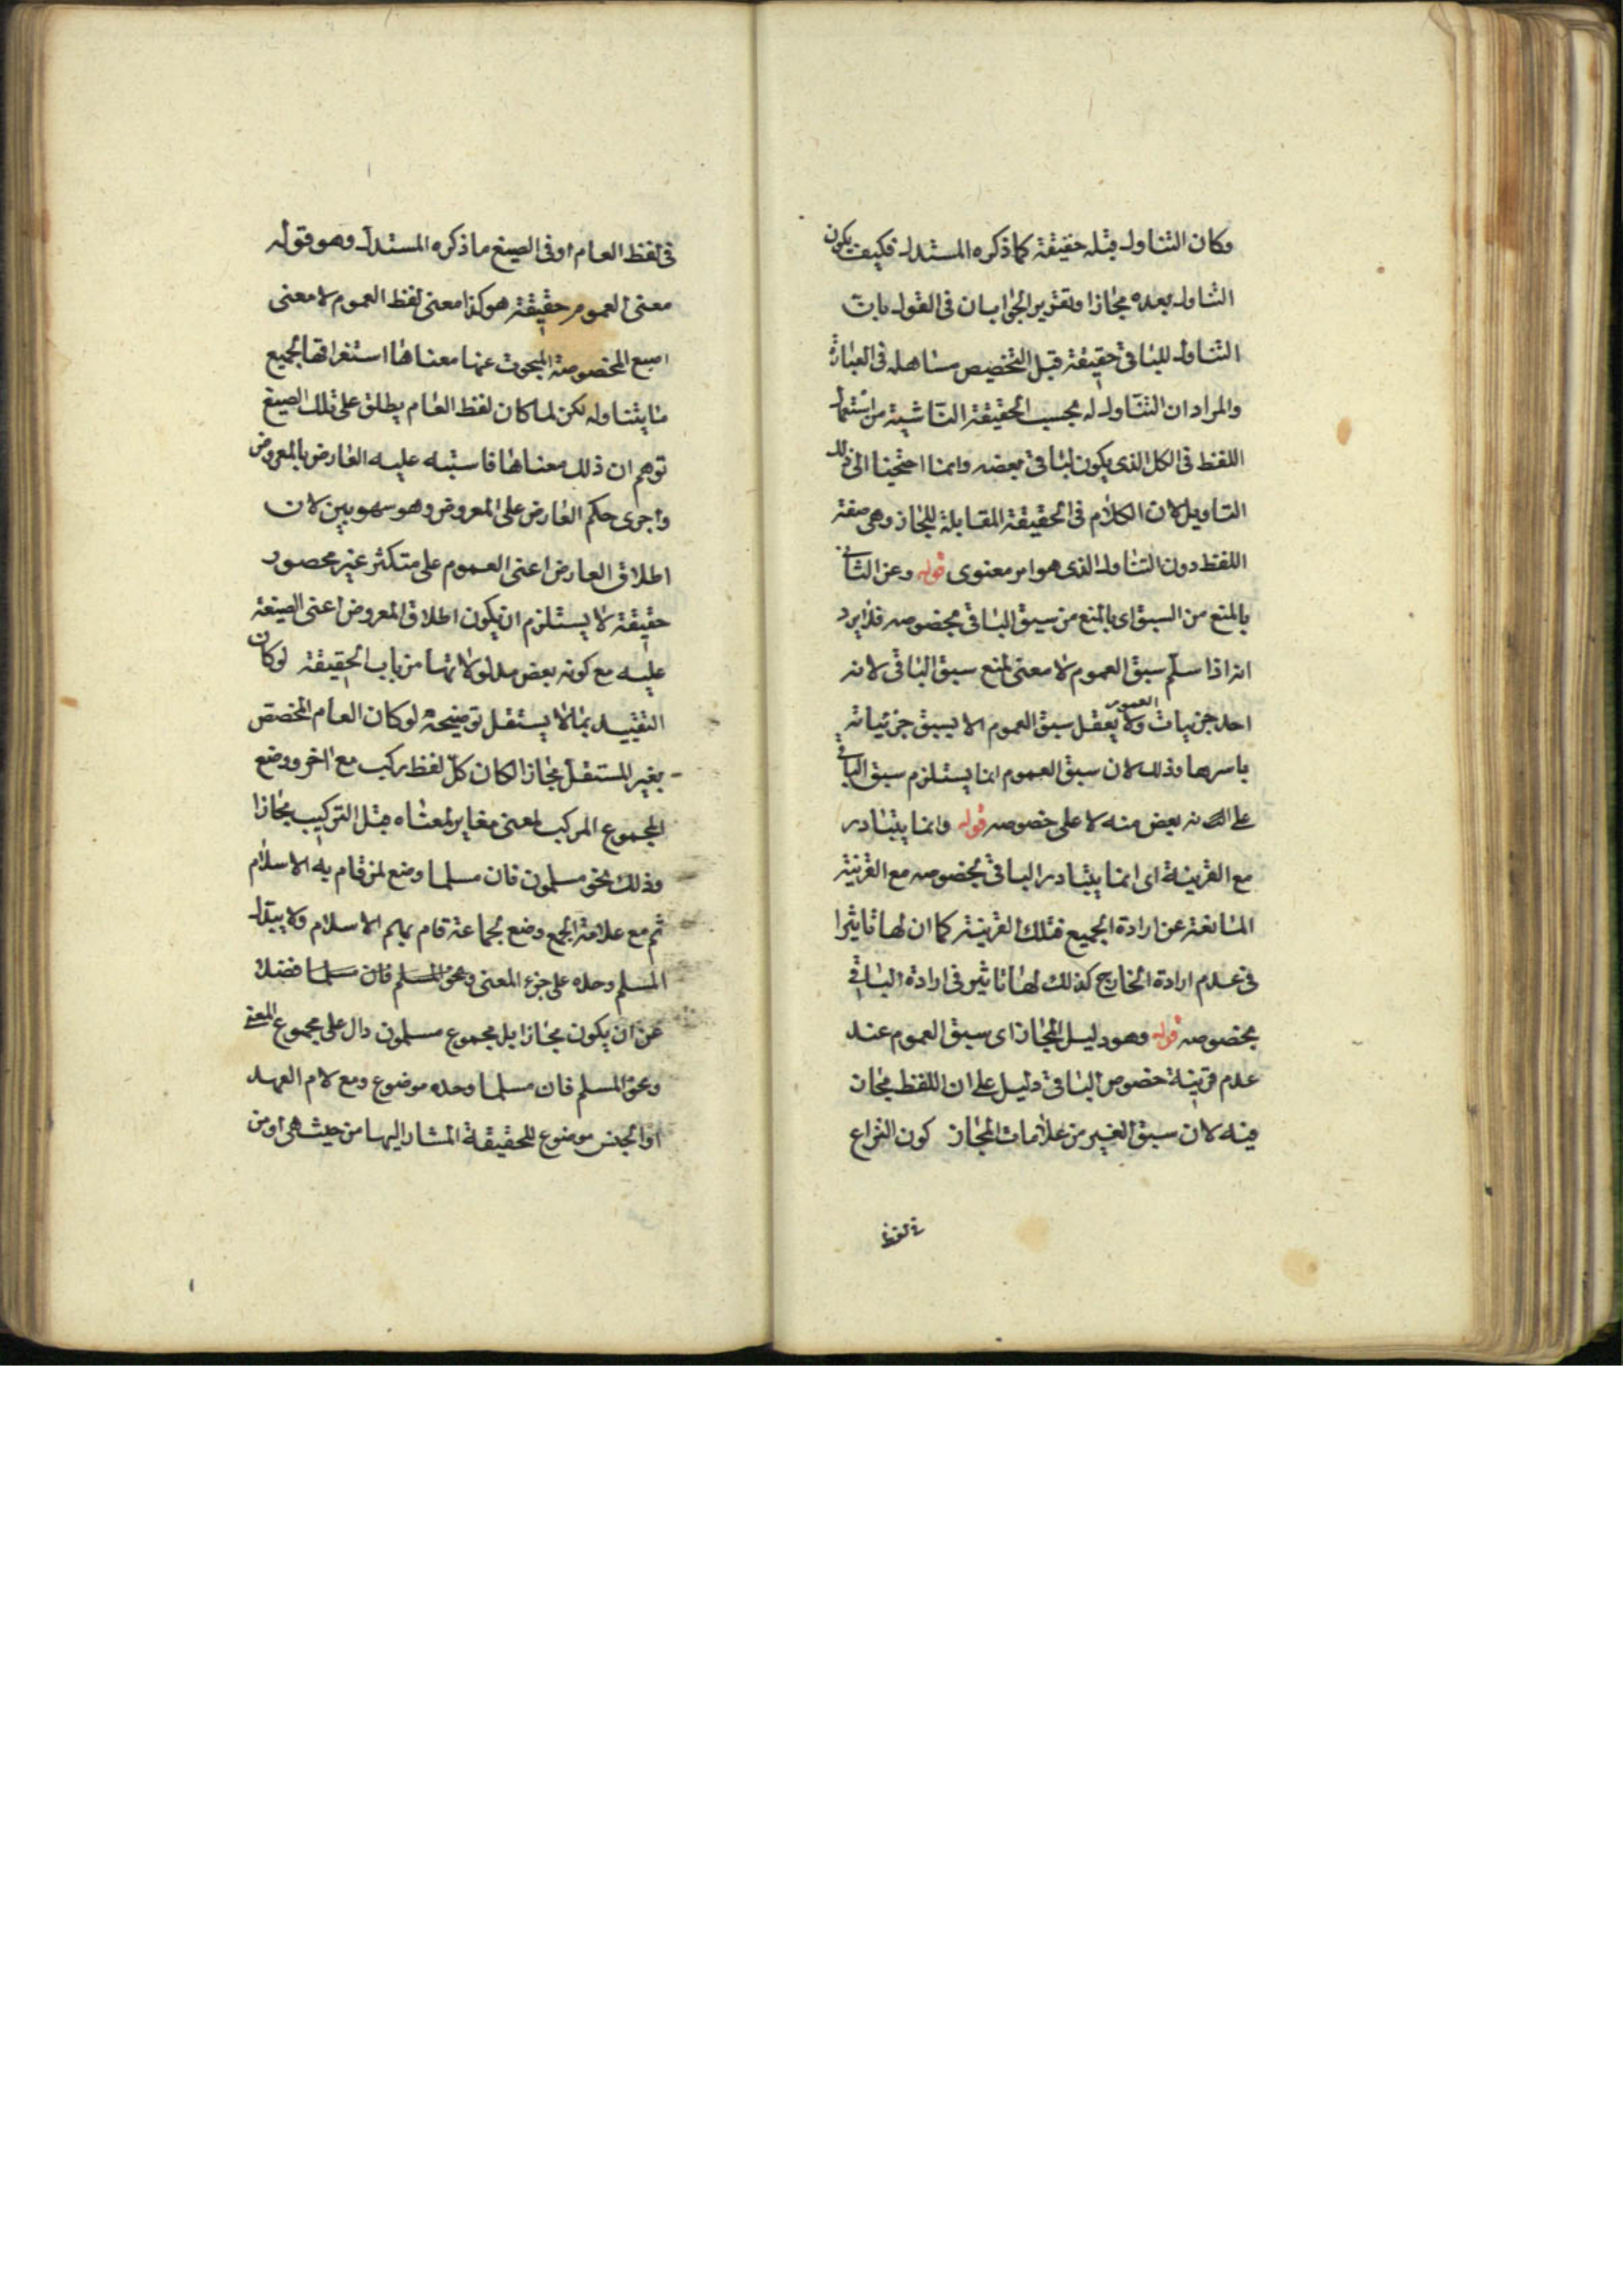 وكان التناول قبله حقيقة كما ذكره المستدل فكيف يكون
التناول بعده مجازا وتقرير الجواب ان في القول بان
التناول للباقي حقيقة قبل التخصيص مساهله في العبارة
والمراد ان التناول له بحسب الحقيقة الناشية من استعمال
اللفظ في الكل الذي يكون الباقي بعضه وانما احتجنا الى ذلك
التاويل لان الكلام في الحقيقة المقابلة للمجاز وهي صفة
اللفظ دون التناول الذي هو امر معنوى قوله وعن الثاني
بالمنع من السبق اى بالمنع من سبق الباقي بخصوصه فلا يرد
انه اذا سلم سبق العموم لا معنى لمنع سبق الباقي لانه
احد جزييات العموم ولا يعقل سبق العموم الا بسبق جزئياته
باسرها وذلك لان سبق العموم انما يستلزم سبق الباقي
على انه بعض منه لا على خصوصه قوله وانما يتبادر
مع القرينة اى انما يتبادر الباقي بخصوصه مع القرينة
المانعة عن ارادة الجميع فتلك القرينة كما ان لها تاثيرا
في عدم ارادة الخارج كذلك لها تاثير في ارادة الباقي
بخصوصه قوله وهو دليل المجاز اى سبق العموم عند
عدم قرينة خصوص الباقي دليل على ان اللفظ مجاز
فيه لان سبق الغير من علامات المجاز كون النزاع
في لفظ
في لفظ العام او في الصيغ ما ذكره المستدل وهو قوله
معنى العموم حقيقة هو كذا معنى لفظ العموم لا معنى
الصيغ المخصوصة المبحوث عنها معناها استغراقها لجميع
ما يتناوله لكن لما كان لفظ العام يطلق على تلك الصيغ
توهم ان ذلك معناها فاشتبه عليه العارض بالمعروض
واجرى حكم العارض على المعروض وهو سهو بين لان
اطلاق العارض اعنى العموم على متكثر غير محصور
حقيقة لا يستلزم ان يكون اطلاق المعروض اعنى الصيغة
عليه مع كونه بعض مدلولاتها من باب الحقيقة لو كان
التقييد بما لا يستقل توضيحه لو كان العام المخصص
بغير المستقل مجازا لكان كل لفظ يركب مع اخر ووضع
المجموع المركب لمعنى مغاير لمعناه قبل التركيب مجازا
وذلك نحو مسلمون فان مسلما وضع لمن قام به الاسلام
ثم مع علامة الجمع وضع لجماعة قام بهم الاسلام ولا يبقا
المسلم وحده على جزء المعنى ونحو المسلم فان مسلما فضلا
عن ان يكون مجازا بل مجموع مسلمون دال على مجموع المعنى
ونحو المسلم فان مسلما وحده موضوع ومع لام العهد
او الجنس موضوع للحقيقة المشار اليها من حيث هي او من